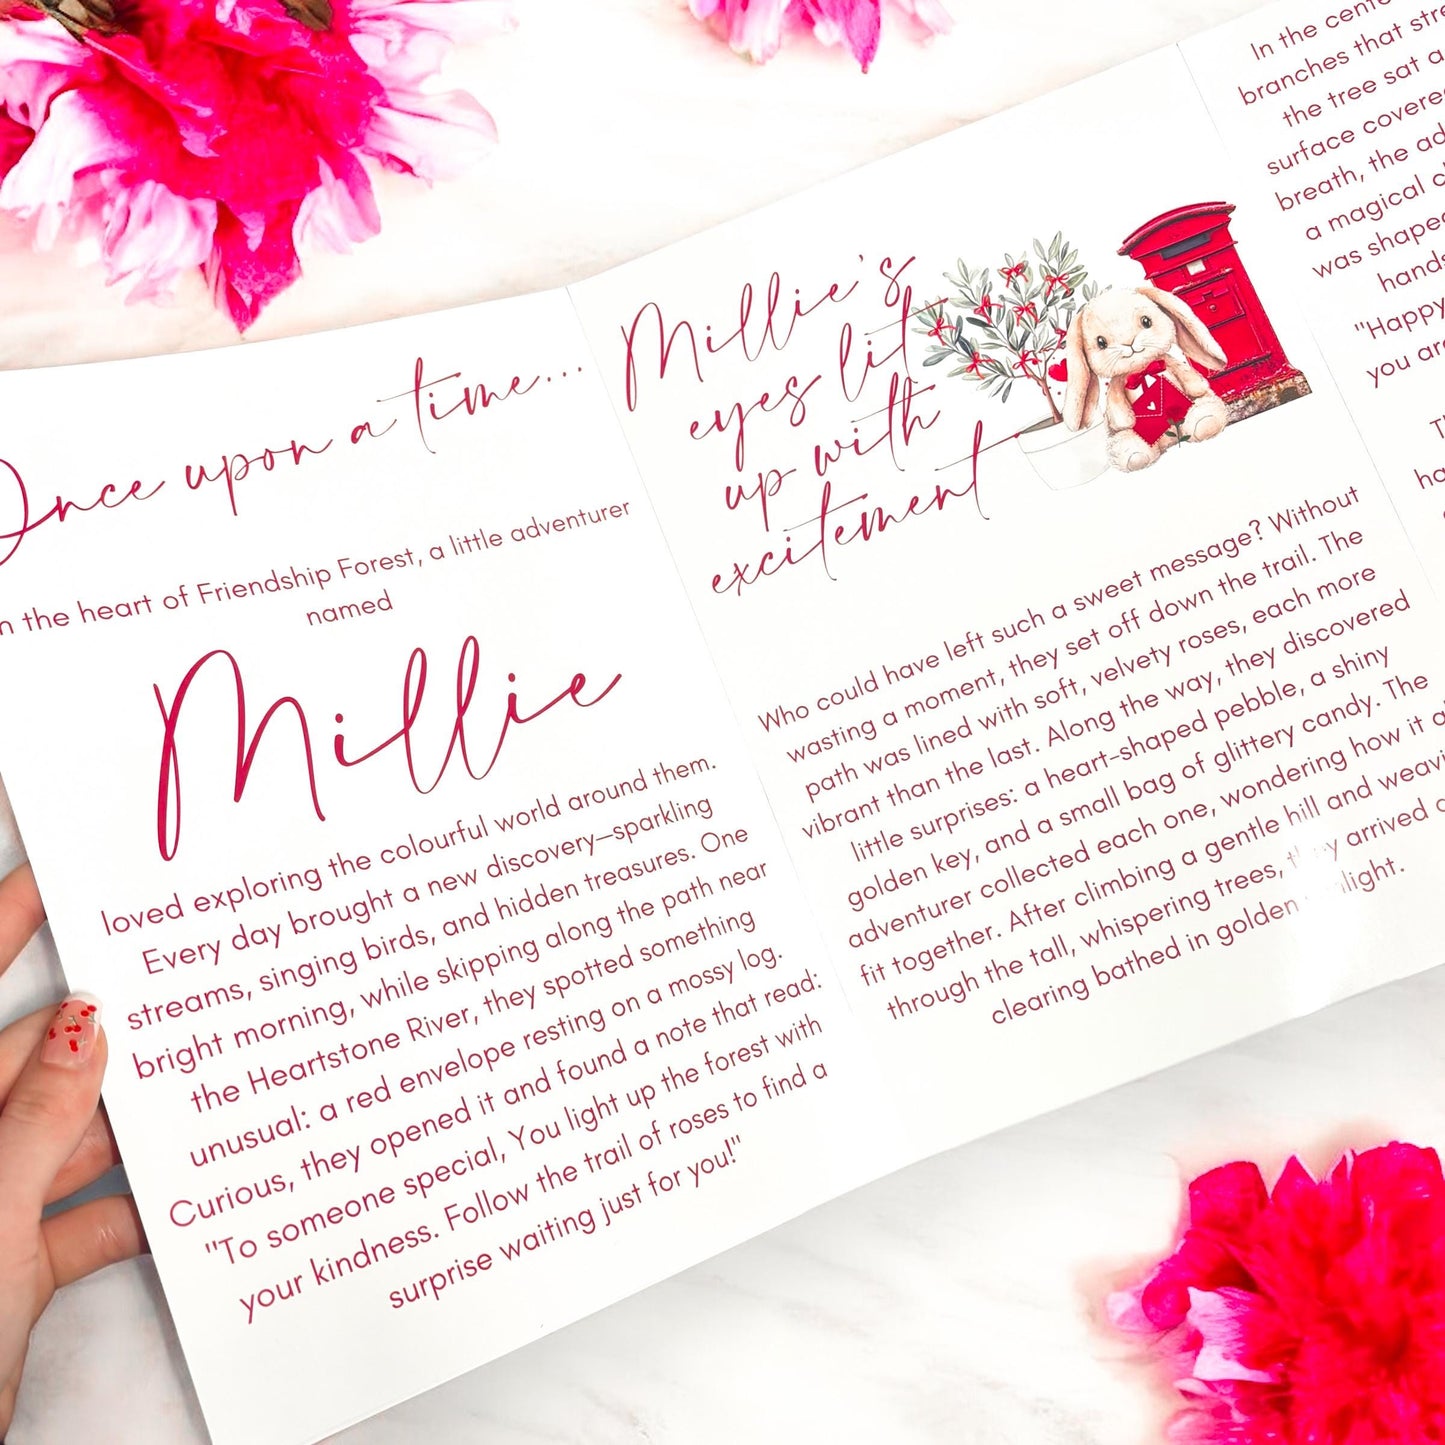 Once upon a time...
n the heart of Friendship Forest, a little adventurer
named
Millie
loved exploring the colourful world around them.
Every day brought a new discovery—sparkling
streams, singing birds, and hidden treasures. One
bright morning, while skipping along the path near
the Heartstone River, they spotted something
unusual: a red envelope resting on a mossy log.
Curious, they opened it and found a note that read:
"To someone special, You light up the forest with
your kindness. Follow the trail of roses to find a
surprise waiting just for you!"
Millie's
eyes lit
up with
excitement
Who could have left such a sweet message? Without
wasting a moment, they set off down the trail. The
path was lined with soft, velvety roses, each more
vibrant than the last. Along the way, they discovered
little surprises: a heart-shaped pebble, a shiny
golden key, and a small bag of glittery candy. The
adventurer collected each one, wondering how it a
fit together. After climbing a gentle hill and weavi
through the tall, whispering trees, they arrived
clearing bathed in golden
In the cent
branches that stre
the tree sat a
surface covere
breath, the ad
a magical c
was shape
hands
"Happy
you are
T
ha